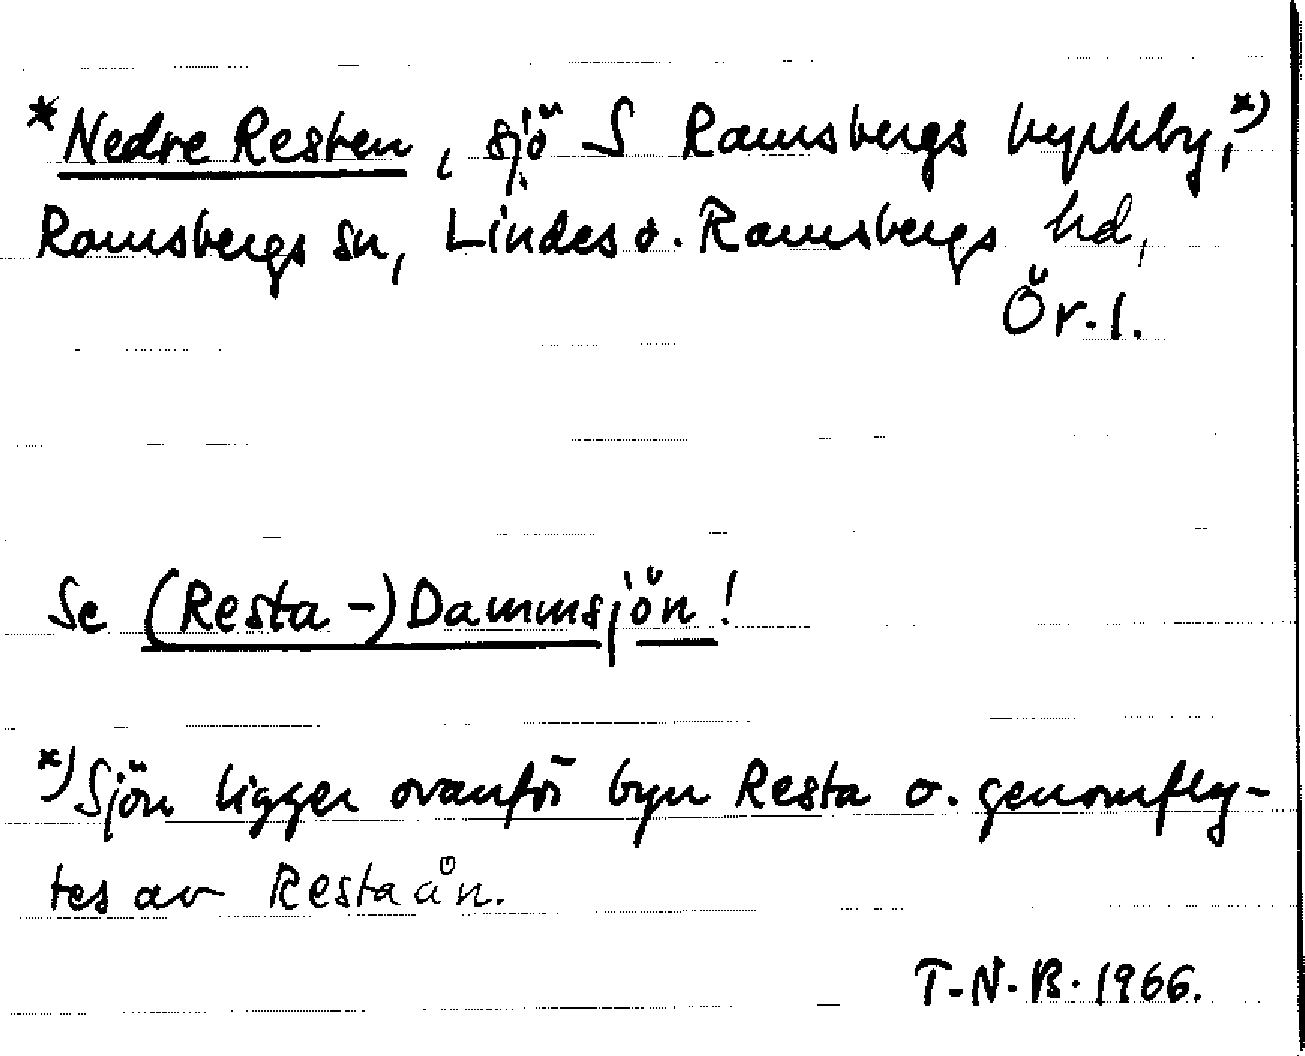 *Nedre Resten, sjö S Ramsbergs kyrkby,*)
Ramsbergs sn, Lindes o. Ramsbergs hd,
Ör. l.
Se (Resta-)Dammsjön!
*) Sjön ligger ovanför byn Resta o. genomfly-
tes av Restaån.
T.N.B. 1966.